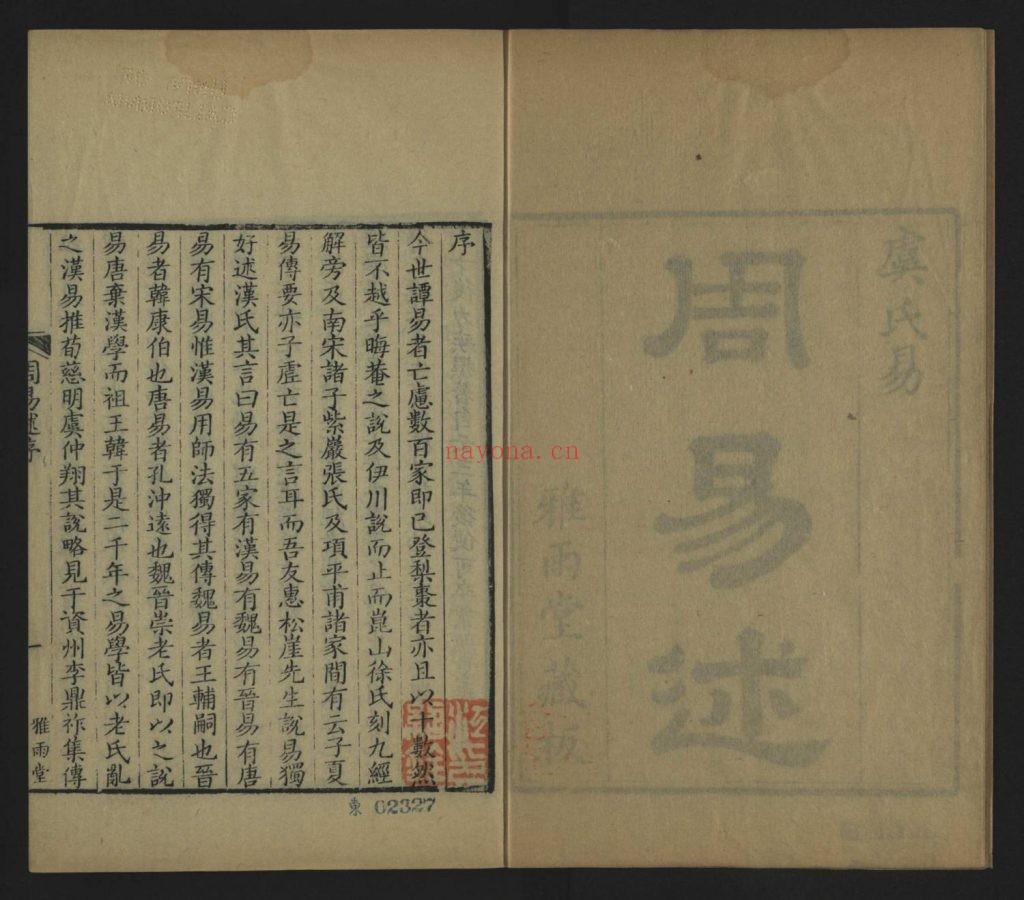 虞氏易
周易述
雅雨堂藏板
序
今世譚易者亡慮數百家即已登梨棗者亦且以十數然
皆不越乎晦菴之說及伊川說而止而崑山徐氏刻九經
解旁及南宋諸子紫巖張氏及項平甫諸家間有云子夏
易傳要亦子虛亡是之言耳而吾友惠松崖先生說易獨
好述漢氏其言曰易有五家有漢易有魏易有晉易有唐
易有宋易惟漢易用師法獨得其傳魏易者王輔嗣也晉
易者韓康伯也唐易者孔沖遠也魏晉崇老氏即以之說
易唐棄漢學而祖王韓于是二千年之易學皆以老氏亂
之漢易推荀慈明虞仲翔其說略見于資州李鼎祚集傳
周易述序
一
雅雨堂
東 02327
nayona.cn